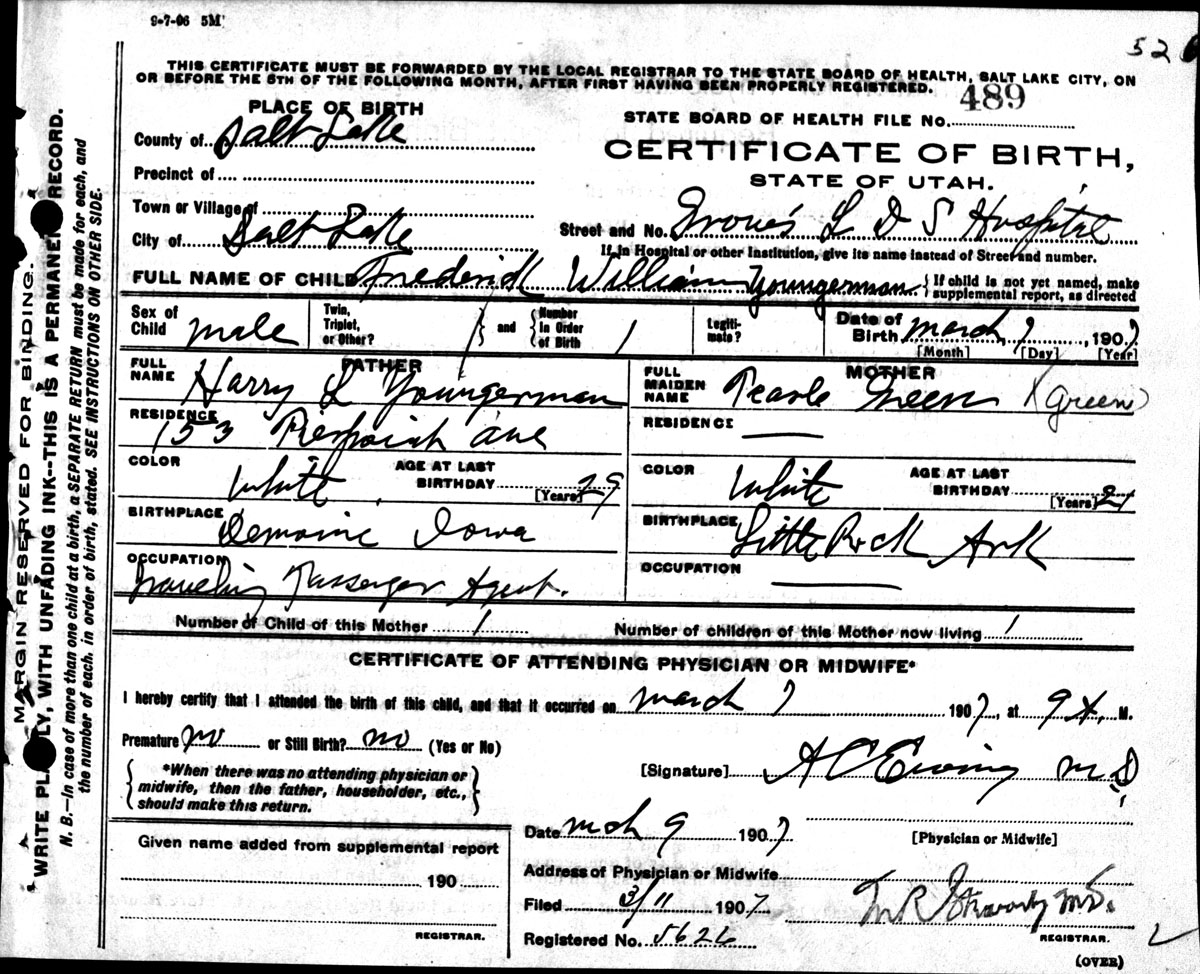 9-7-06 5M
52
THIS CERTIFICATE MUST BE FORWARDED BY THE LOCAL REGISTRAR TO THE STATE BOARD OF HEALTH, SALT LAKE CITY, ON
OR BEFORE THE 5TH OF THE FOLLOWING MONTH, AFTER FIRST HAVING BEEN PROPERLY REGISTERED.
PLACE OF BIRTH
County of Salt Lake
Precinct of
Town or Village of
City of Salt Lake
489
STATE BOARD OF HEALTH FILE No.
CERTIFICATE OF BIRTH,
STATE OF UTAH.
Street and No. Groves L D S Hospital
If in Hospital or other Institution, give its name instead of Street and number.
FULL NAME OF CHILD Frederick William Youngerman { If child is not yet named, make
supplemental report, as directed
Sex of Child male
Twin, Triplet, or Other? } and { Number In Order of Birth 1
Legitimate?
Date of Birth March 7, 1907
[Month] [Day] [Year]
FATHER
FULL NAME Harry L Youngerman
RESIDENCE 153 Ave
COLOR White AGE AT LAST BIRTHDAY 29 [Years]
BIRTHPLACE Demoine Iowa
OCCUPATION
Traveling Passenger Agent.
MOTHER
FULL MAIDEN NAME Pearle Green (Green)
RESIDENCE
COLOR White AGE AT LAST BIRTHDAY 21 [Years]
BIRTHPLACE Little Rock Ark
OCCUPATION
Number of Child of this Mother 1 Number of children of this Mother now living 1
CERTIFICATE OF ATTENDING PHYSICIAN OR MIDWIFE*
I hereby certify that I attended the birth of this child, and that it occurred on March 7 1907, at 9 A. M.
Premature no or Still Birth? no (Yes or No)
{ *When there was no attending physician or
midwife, then the father, householder, etc.,
should make this return. }
[Signature] A C Ewing M D
[Physician or Midwife]
Date Mch 9 1907
Address of Physician or Midwife
Filed 3/11 1907
Registered No. 5626
REGISTRAR.
(OVER)
Given name added from supplemental report
190
REGISTRAR.
MARGIN RESERVED FOR BINDING.
WRITE PLAINLY, WITH UNFADING INK--THIS IS A PERMANENT RECORD.
N. B.—In case of more than one child at a birth, a SEPARATE RETURN must be made for each, and
the number of each, in order of birth, stated. SEE INSTRUCTIONS ON OTHER SIDE.